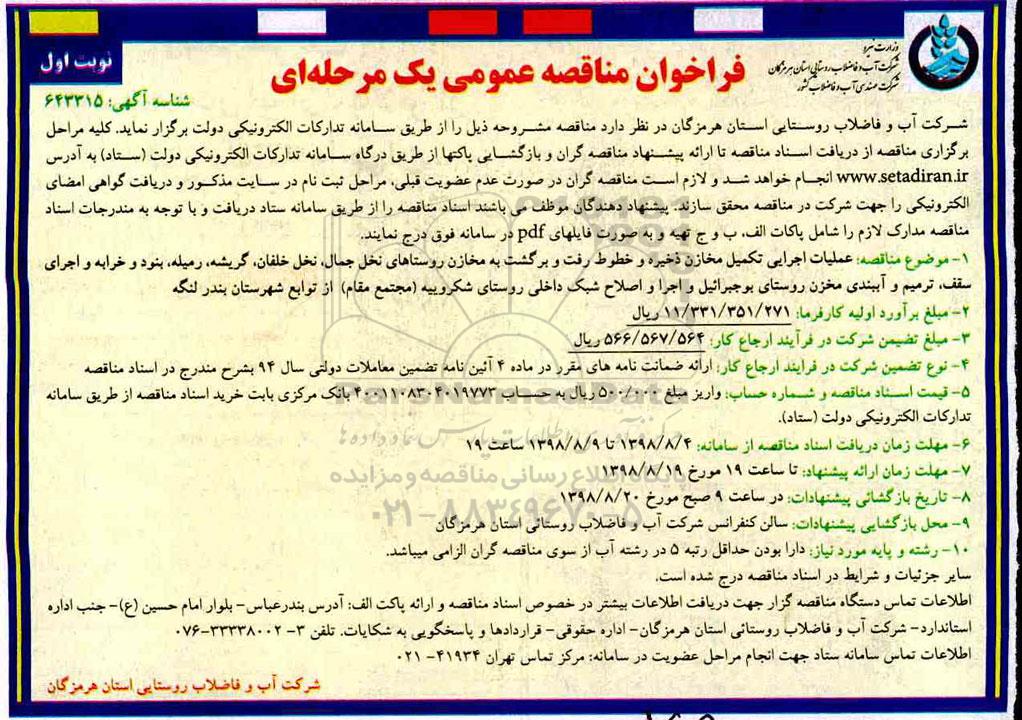 وزارت نیرو
شرکت آب و فاضلاب روستایی استان هرمزگان
شرکت مهندسی آب و فاضلاب کشور
نوبت اول
فراخوان مناقصه عمومی یک مرحله‌ای
شناسه آگهی: ۶۴۳۳۱۵
شرکت آب و فاضلاب روستایی استان هرمزگان در نظر دارد مناقصه مشروحه ذیل را از طریق سامانه تدارکات الکترونیکی دولت برگزار نماید. کلیه مراحل
برگزاری مناقصه از دریافت اسناد مناقصه تا ارائه پیشنهاد مناقصه گران و بازگشایی پاکتها از طریق درگاه سامانه تدارکات الکترونیکی دولت (ستاد) به آدرس
www.setadiran.ir انجام خواهد شد و لازم است مناقصه گران در صورت عدم عضویت قبلی، مراحل ثبت نام در سایت مذکور و دریافت گواهی امضای
الکترونیکی را جهت شرکت در مناقصه محقق سازند. پیشنهاد دهندگان موظف می باشند اسناد مناقصه را از طریق سامانه ستاد دریافت و با توجه به مندرجات اسناد
مناقصه مدارک لازم را شامل پاکات الف، ب و ج تهیه و به صورت فایلهای pdf در سامانه فوق درج نمایند.
۱- موضوع مناقصه: عملیات اجرایی تکمیل مخازن ذخیره و خطوط رفت و برگشت به مخازن روستاهای نخل جمال، نخل خلفان، گریشه، رمیله، بنود و خرابه و اجرای
سقف، ترمیم و آببندی مخزن روستای بوجبرائیل و اجرا و اصلاح شبک داخلی روستای شکروییه (مجتمع مقام) از توابع شهرستان بندر لنگه
۲- مبلغ برآورد اولیه کارفرما: ۱۱/۳۳۱/۳۵۱/۲۷۱ ریال
۳- مبلغ تضیمن شرکت در فرآیند ارجاع کار: ۵۶۶/۵۶۷/۵۶۴ ریال
۴- نوع تضمین شرکت در فرایند ارجاع کار: ارائه ضمانت نامه های مقرر در ماده ۴ آئین نامه تضمین معاملات دولتی سال ۹۴ بشرح مندرج در اسناد مناقصه
۵- قیمت اسناد مناقصه و شماره حساب: واریز مبلغ ۵۰۰/۰۰۰ ریال به حساب ۴۰۰۱۱۰۸۳۰۴۰۱۹۷۷۳ بانک مرکزی بابت خرید اسناد مناقصه از طریق سامانه
تدارکات الکترونیکی دولت (ستاد).
۶- مهلت زمان دریافت اسناد مناقصه از سامانه: ۱۳۹۸/۸/۴ تا ۱۳۹۸/۸/۹ ساعت ۱۹
۷- مهلت زمان ارائه پیشنهاد: تا ساعت ۱۹ مورخ ۱۳۹۸/۸/۱۹
۸- تاریخ بازگشائی پیشنهادات: در ساعت ۹ صبح مورخ ۱۳۹۸/۸/۲۰
۹- محل بازگشایی پیشنهادات: سالن کنفرانس شرکت آب و فاضلاب روستائی استان هرمزگان
۱۰- رشته و پایه مورد نیاز: دارا بودن حداقل رتبه ۵ در رشته آب از سوی مناقصه گران الزامی میباشد.
سایر جزئیات و شرایط در اسناد مناقصه درج شده است.
اطلاعات تماس دستگاه مناقصه گزار جهت دریافت اطلاعات بیشتر در خصوص اسناد مناقصه و ارائه پاکت الف: آدرس بندرعباس- بلوار امام حسین (ع)- جنب اداره
استاندارد- شرکت آب و فاضلاب روستائی استان هرمزگان- اداره حقوقی- قراردادها و پاسخگویی به شکایات. تلفن ۳- ۳۳۳۳۸۰۰۲-۰۷۶
اطلاعات تماس سامانه ستاد جهت انجام مراحل عضویت در سامانه: مرکز تماس تهران ۴۱۹۳۴- ۰۲۱
شرکت آب و فاضلاب روستایی استان هرمزگان
پایگاه اطلاع رسانی مناقصه و مزایده
۰۲۱-۸۸۳۴۹۶۷۰-۵